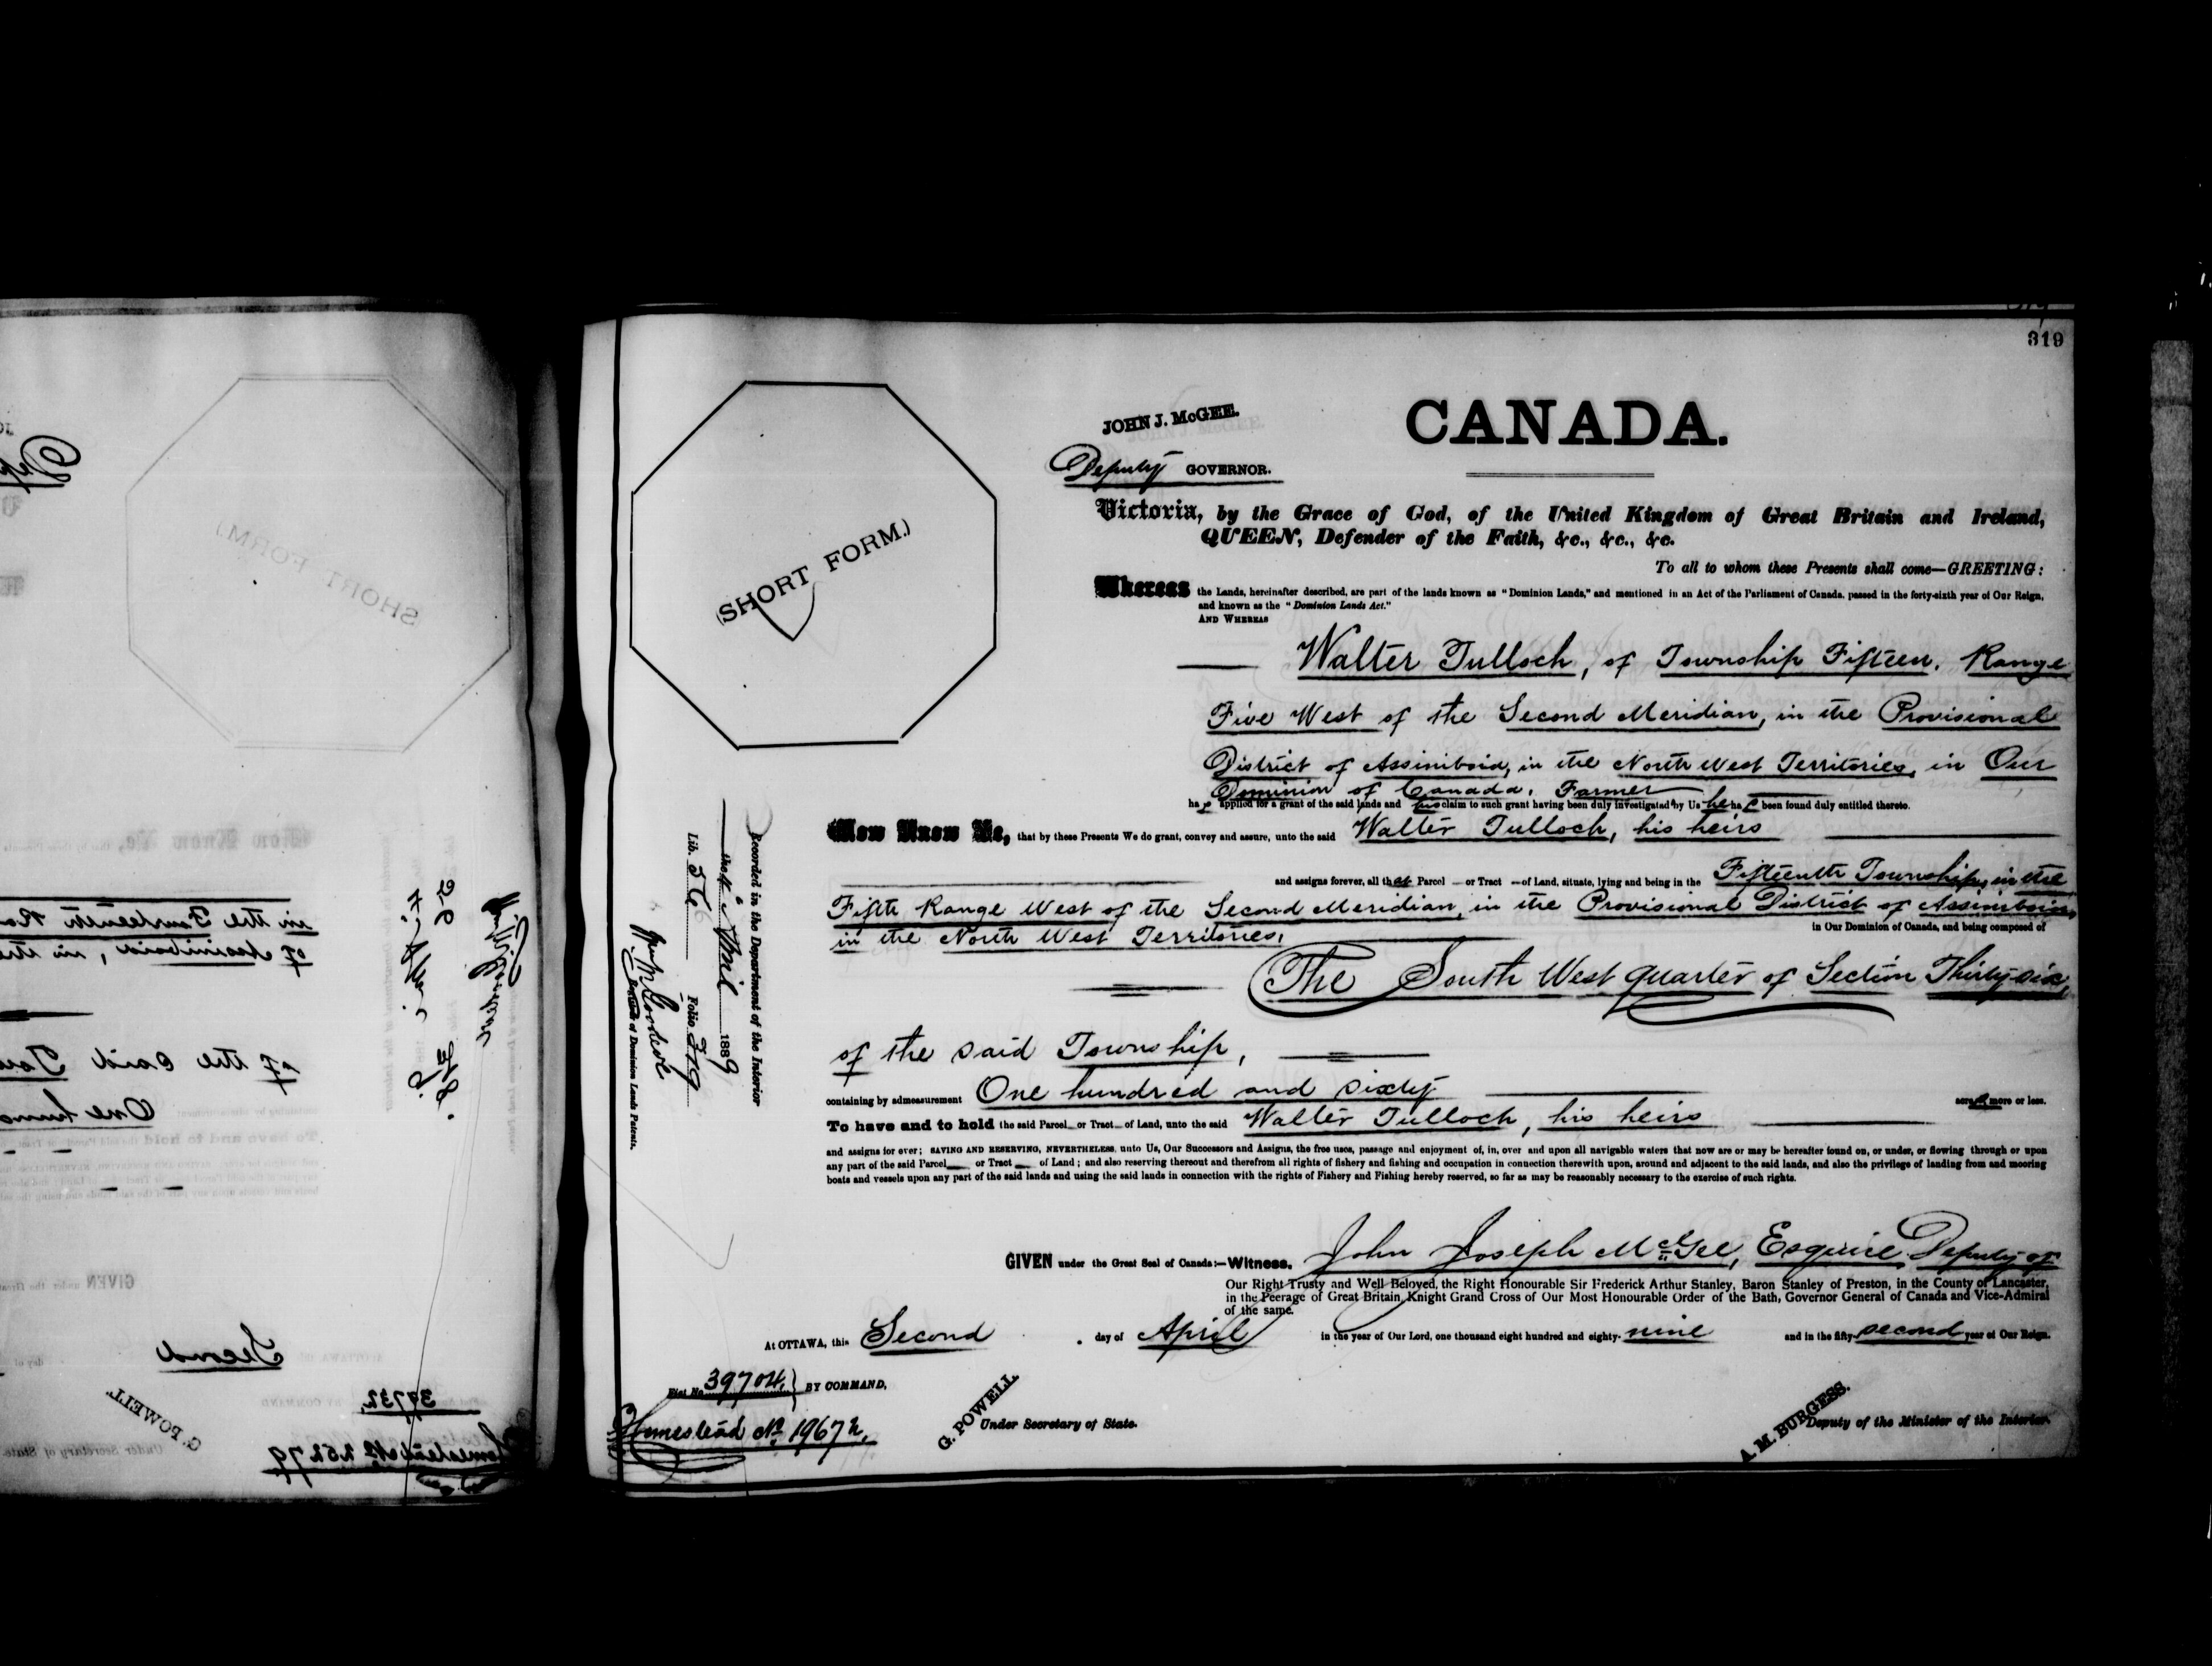 319
CANADA.
JOHN J. McGEE.
Deputy GOVERNOR.
(SHORT FORM.)
Victoria, by the Grace of God, of the United Kingdom of Great Britain and Ireland,
QUEEN, Defender of the Faith, &c., &c., &c.
To all to whom these Presents shall come—GREETING:
Whereas the Lands, hereinafter described, are part of the lands known as "Dominion Lands," and mentioned in an Act of the Parliament of Canada, passed in the forty-sixth year of Our Reign,
and known as the "Dominion Lands Act."
AND WHEREAS
Walter Tulloch, of Township Fifteen, Range
Five West of the Second Meridian, in the Provisional
District of Assiniboia, in the North West Territories, in Our
Dominion of Canada, Farmer
has applied for a grant of the said lands and his claim to such grant having been duly investigated by Us he has been found duly entitled thereto.
Now Know Ye, that by these Presents We do grant, convey and assure, unto the said Walter Tulloch, his heirs
and assigns forever, all that Parcel or Tract of Land, situate, lying and being in the Fifteenth Township, in the
Fifth Range West of the Second Meridian, in the Provisional District of Assiniboia,
in the North West Territories,
in Our Dominion of Canada, and being composed of
The South West quarter of Section Thirty-six,
of the said Township,
containing by admeasurement One hundred and sixty acres more or less.
To have and to hold the said Parcel or Tract of Land, unto the said Walter Tulloch, his heirs
and assigns for ever; SAVING AND RESERVING, NEVERTHELESS, unto Us, Our Successors and Assigns, the free uses, passage and enjoyment of, in, over and upon all navigable waters that now are or may be hereafter found on, or under, or flowing through or upon
any part of the said Parcel or Tract of Land; and also reserving thereout and therefrom all rights of fishery and fishing and occupation in connection therewith upon, around and adjacent to the said lands, and also the privilege of landing from and mooring
boats and vessels upon any part of the said lands and using the said lands in connection with the rights of Fishery and Fishing hereby reserved, so far as may be reasonably necessary to the exercise of such rights.
GIVEN under the Great Seal of Canada:—Witness, John Joseph McGee, Esquire Deputy of
Our Right Trusty and Well Beloved, the Right Honourable Sir Frederick Arthur Stanley, Baron Stanley of Preston, in the County of Lancaster,
in the Peerage of Great Britain, Knight Grand Cross of Our Most Honourable Order of the Bath, Governor General of Canada and Vice-Admiral
of the same.
At OTTAWA, this Second day of April in the year of Our Lord, one thousand eight hundred and eighty-nine and in the fifty-second year of Our Reign.
39704 BY COMMAND,
Homestead No 19672,
G. POWELL.
Under Secretary of State.
A. M. BURGESS.
Deputy of the Minister of the Interior.
Recorded in the Department of the Interior
the 4 April 1889
Lib. 56 Folio 319
of Dominion Lands Patents.